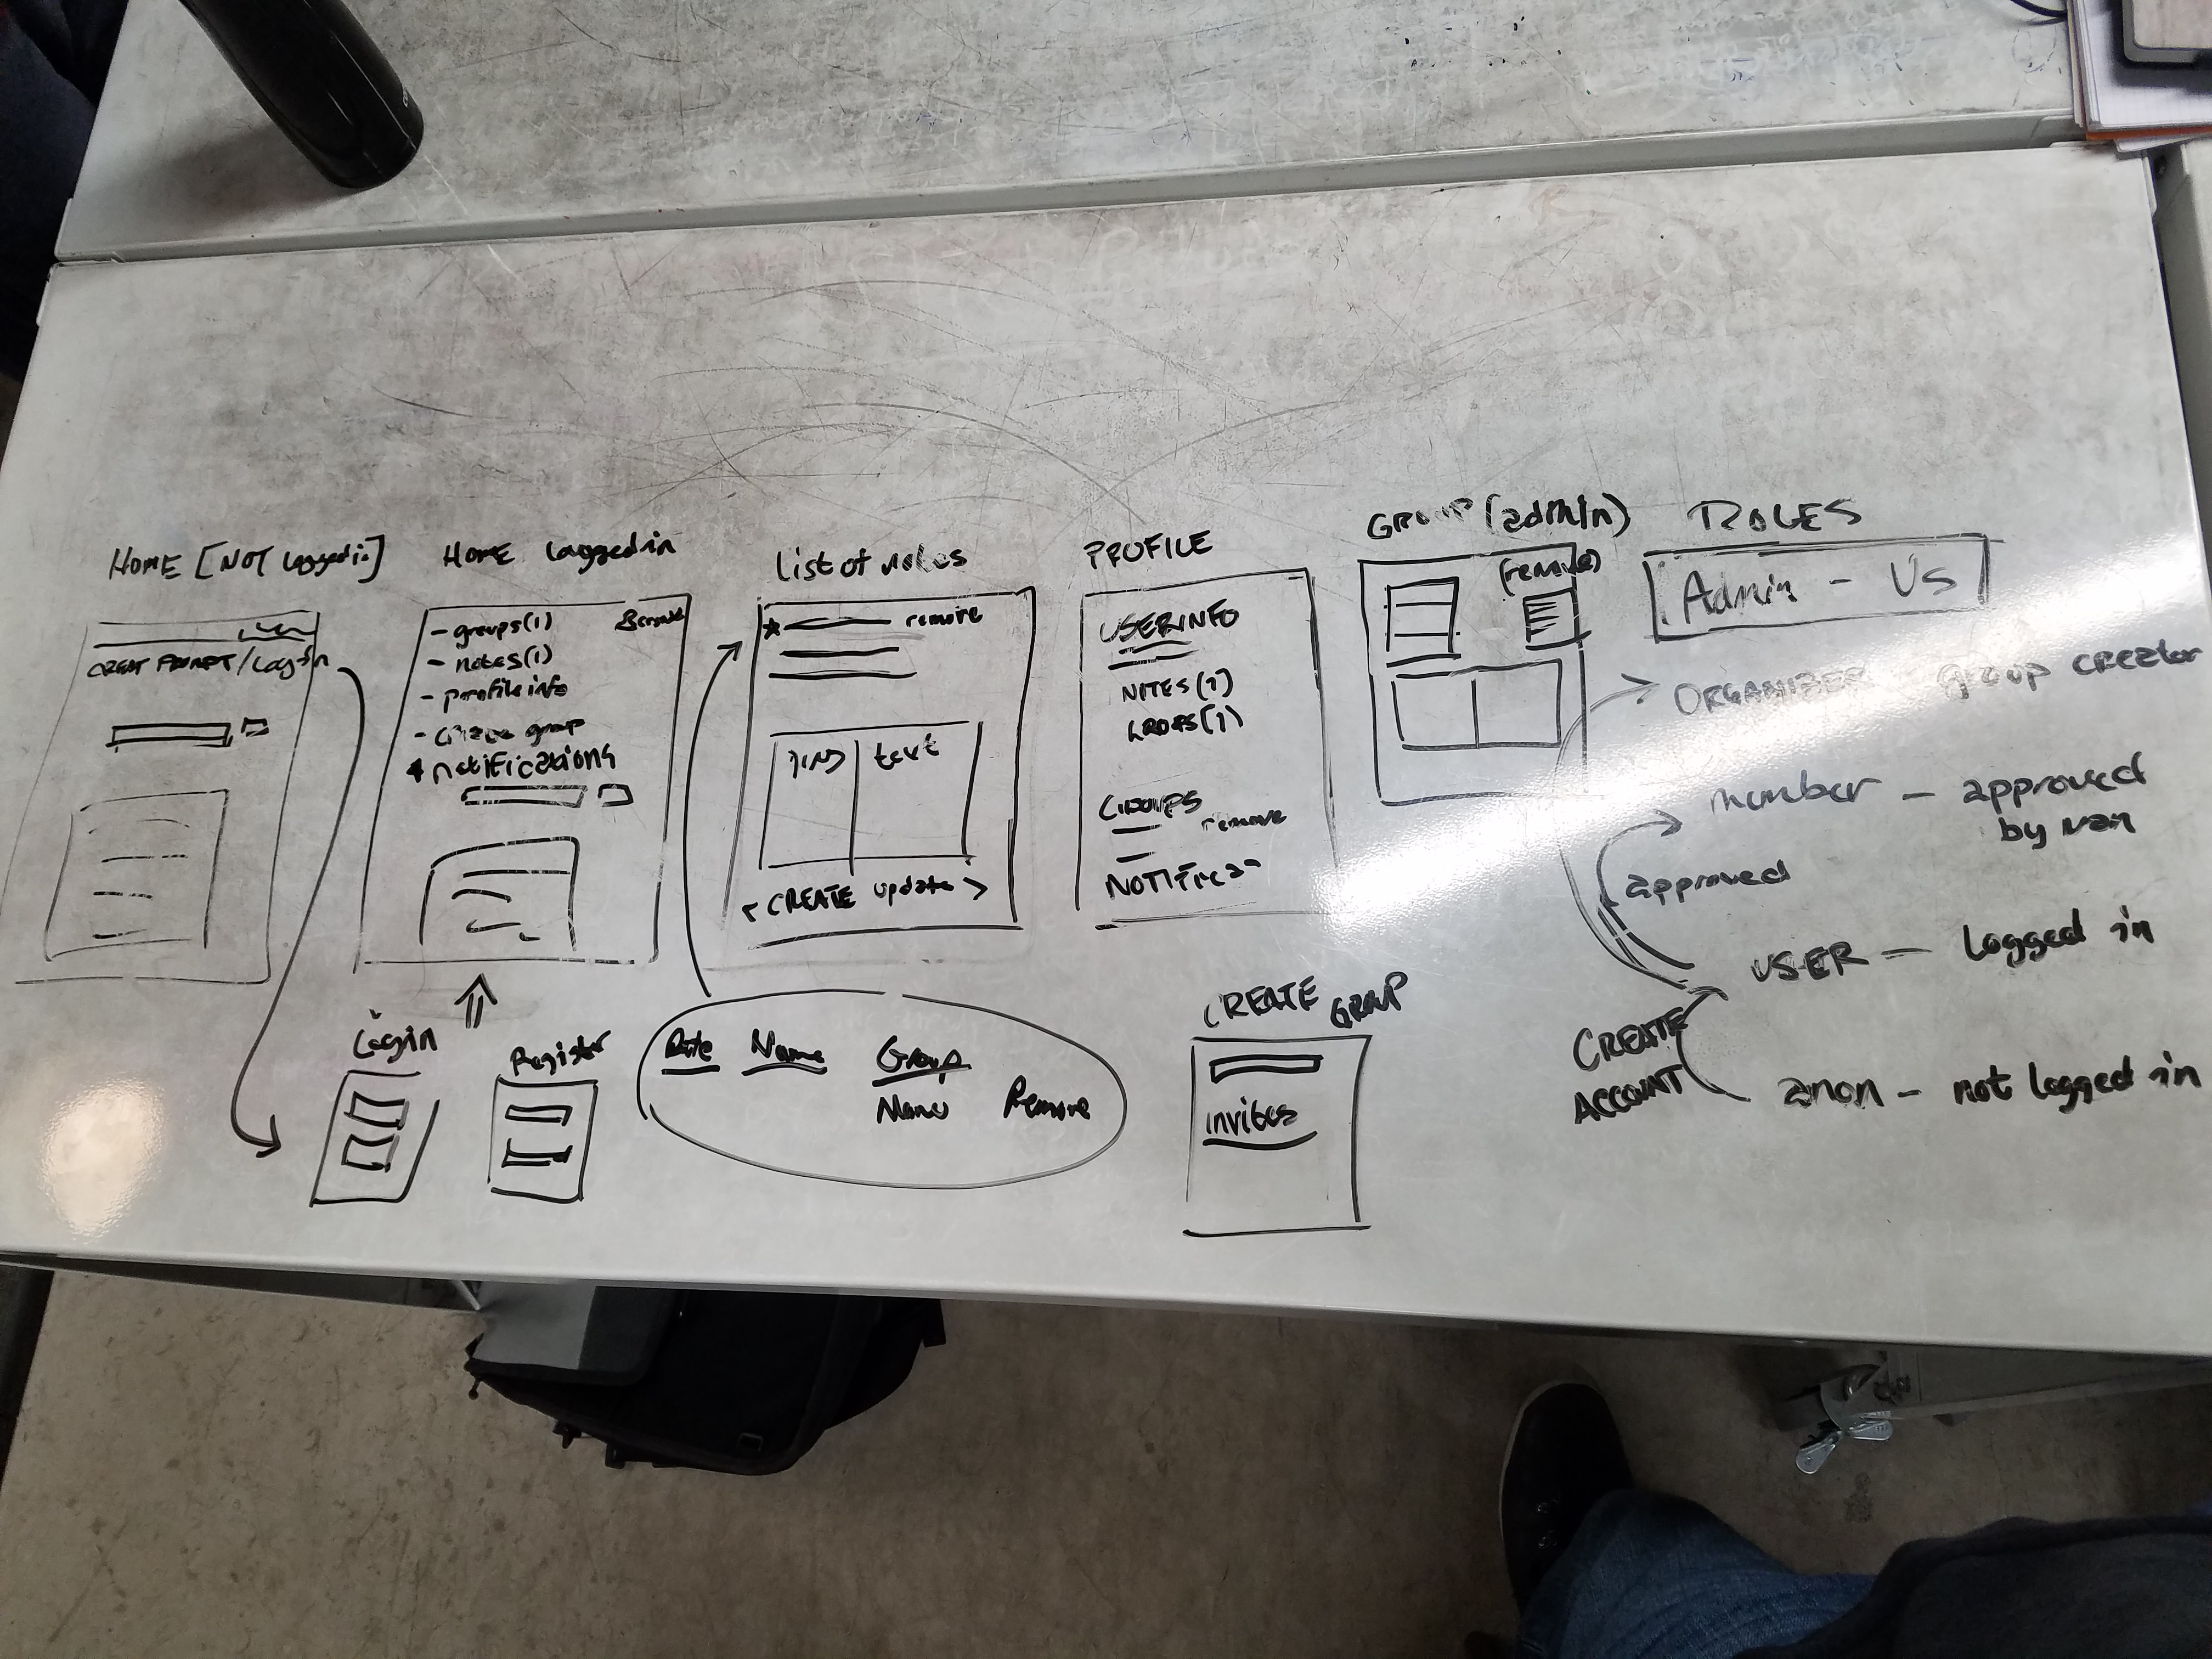 HOME [NOT Logged in]
CREAT PROMPT/Login
HOME Logged in
- groups(1)
- notes(1)
- profile info
- group
* notifications
List of notes
* remove
text
< CREATE update >
PROFILE
USERINFO
NOTES(1)
GROUPS
remove
GROUP (admin)
(remove)
ROLES
Admin - US
ORGANIZER - group creator
member - approved
by
approved
USER - Logged in
CREATE
ACCOUNT
anon - not logged in
Login
Register
Name Group
Name Remove
CREATE GROUP
invites